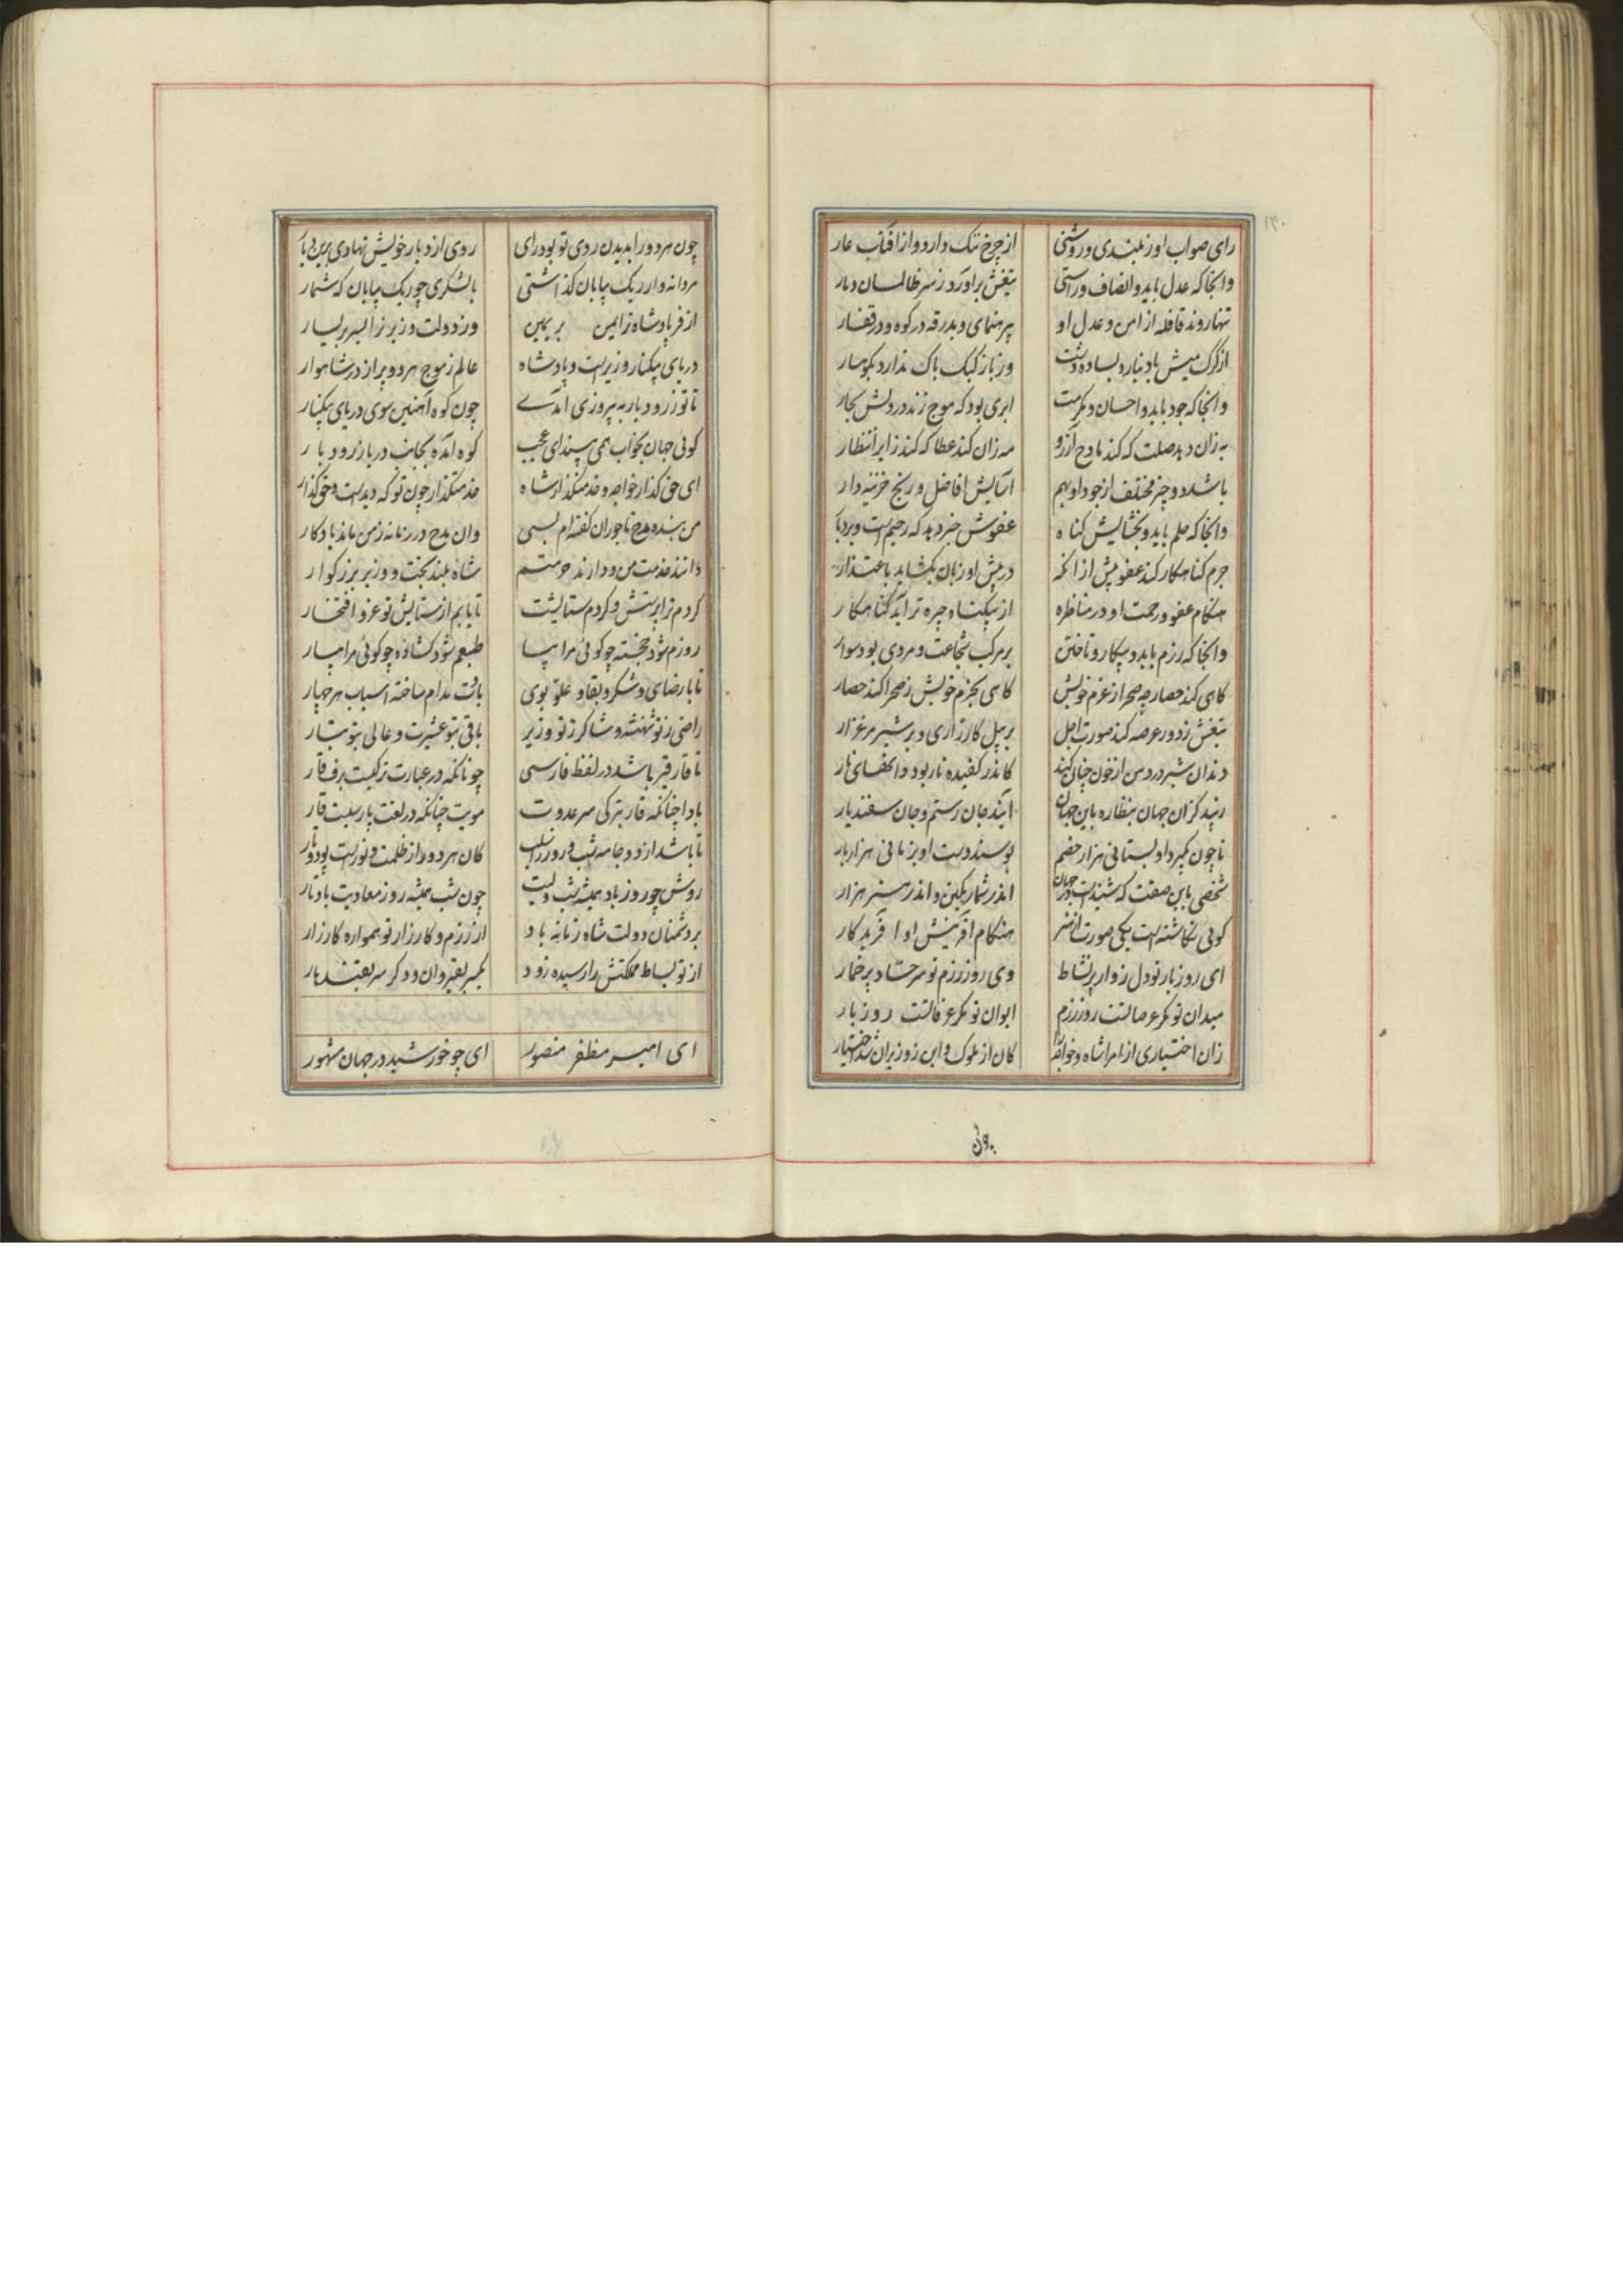 رای صواب اوز بلندی و روشنی از چرخ ننک دارد و از آفتاب عار
وانجا که عدل باید و انصاف و راستی تیغش براورد ز سر ظالمان دمار
تنها روند قافله از امن و عدل او بیرهنمای و بدرقه در کوه و در قفار
از کرک میش باد نیارد بساده دشت وز باز کبک باک ندارد بکوهسار
وانجا که جود باید و احسان و مکرمت ابری بود که موج زند در دلش بحار
به زان دهد صلت که کند مادح آرزو مه زان کند عطا که کند زایر انتظار
باشد دو چیز مختلف از جود او بهم آسایش افاضل و رنج خزینه دار
وانجا که حلم باید و بخشایش کناه عفوش خبر دهد که رحیم است و بردبار
جرم کناهکار کند عفو پیش از آنکه در پیش او زبان بکشاید باعتذار
هنکام عفو و رحمت او در مناظره از بیکناه چیره تر آید کناهکار
وانجا که رزم باید و پیکار و تاختن بر مرکب شجاعت و مردی بود سوار
کاهی کند حصار چو صحرا ز عزم خویش کاهی بحزم خویش ز صحرا کند حصار
تیغش ز دور عرضه کند صورت اجل بر پیل کارزاری و بر شیر مرغزار
دندان شیر در دهن از خون چنان کند کاندر کفیده نار بود دانهای نار
ایند کزان جهان بنظاره باین جهان آیند جان رستم و جان سفندیار
تا چون بکیرد او بستانی هزار خصم بوسند دست او بزمانی هزار بار
شخصی باین صفت که شنیدست در جهان اندر شمار یکتن و اندر هنر هزار
کوئی نکاشته است یکی صورت از هنر هنکام آفرینش او آفریدکار
ای روز بار تو دل زوار پرنشاط وی روز رزم تو سر حساد پرخمار
میدان تو مکر عرصاتست روز رزم ایوان تو مکر عرفاتست روز بار
زان اختیاری از امرا شاه و خواجه را کان از ملوک و این ز وزیران شد اختیار
بوئی
چون هر دو را بدیدن روی تو بود رای روی از دیار خویش نهادی بدین دیار
مردانه وار ریک بیابان کذاشتی با لشکری چو ریک بیابان که شمار
از فر پادشاه ترا یمن بر یمین وز دولت وزیر ترا یسر بر یسار
دریای بیکنار وزیر است و پادشاه عالم ز موج هر دو پر از در شاهوار
تا تو ز رودبار به پیروزی آمدی چون کوه آهنین سوی دریای بیکنار
کوئی جهان بخواب همی بیند ای عجب کوه آمده بجانب دریا ز رودبار
ای حق کذار خواجه و خدمتکذار شاه خدمتکذار چون تو که دیدست و حق کذار
من بنده مدح تاجوران کفته ام بسی وان مدح در زمانه ز من ماند یادکار
دانند خدمت من و دارند حرمتم شاه بلند بخت و وزیر بزرکوار
کردم ترا پرستش و کردم ستایشت تا یابم از ستایش تو عز و افتخار
روزم شود خجسته چو کوئی مرا بیا طبعم شود کشاده چو کوئی مرا بیار
تا با رضای و شکر و بقا و علو بوی بادت مدام ساخته اسباب هر چهار
راضی ز تو شهنشه و شاکر ز تو وزیر باقی بتو عشیرت و عالی بتو تبار
تا قار قیر باشد در لفظ فارسی چونانکه در عبارت ترکیست برف قار
بادا چنانکه قار بترکی سر عدوت مویت چنانکه در لغت پارسیست قار
تا باشد از دو جامه شب و روز را سلب کان هر دو را ز ظلمت و نورست پود و تار
روشن چو روز باد همیشه شب ولیت چون شب همیشه روز معادیت باد تار
بر دشمنان دولت شاه زمانه باد از رزم و کارزار تو همواره کارزار
از تو بساط مملکتش را رسیده زود یکسر بقیروان و دکر سر بقندهار
ای امیر مظفر منصور ای چو خورشید در جهان مشهور